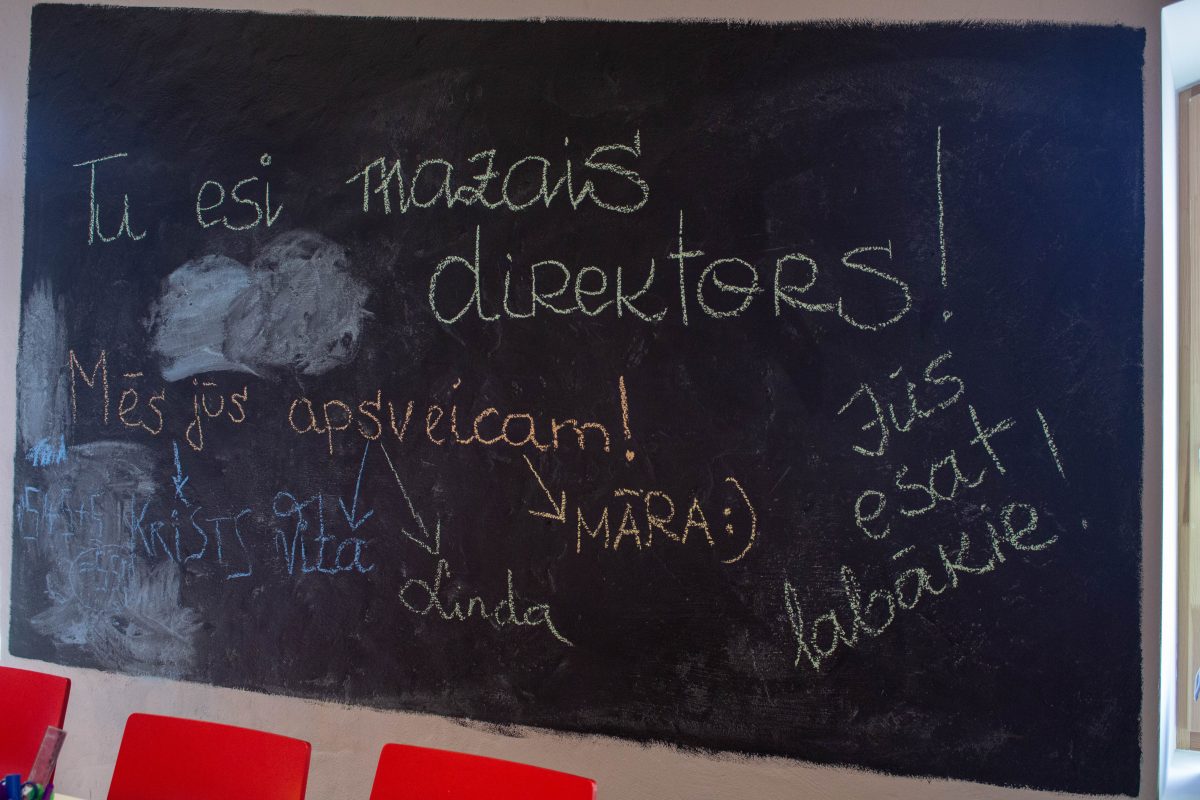 Tu esi mazais
direktors!
Mēs jūs apsveicam!
Krists Vita
Linda
MĀRA :)
Jūs
esat
labākie!